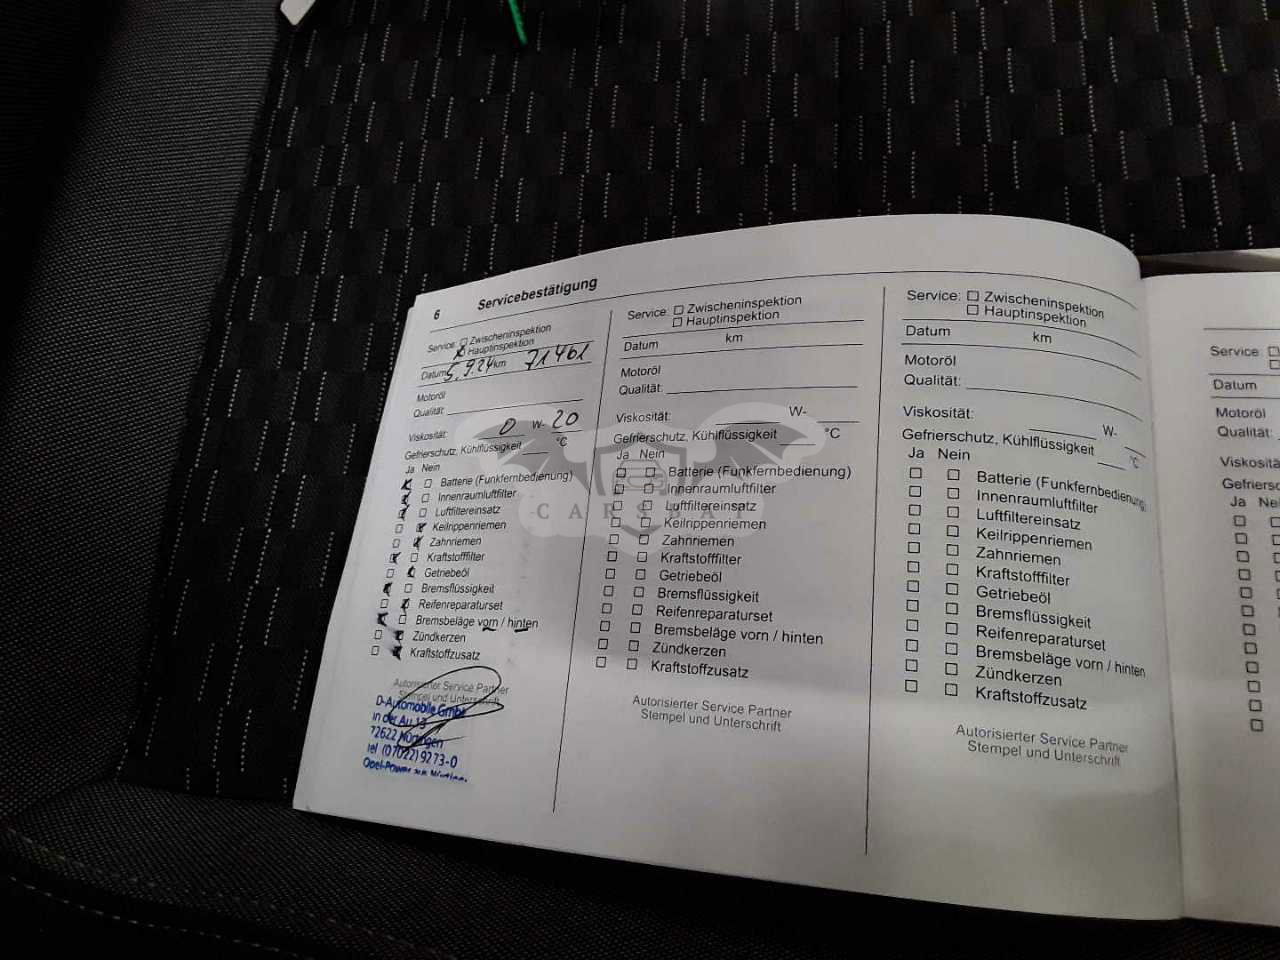 6 Servicebestätigung
Service: Zwischeninspektion
Hauptinspektion
Datum 5.9.24 km 71461
Motoröl
Qualität:
Viskosität: 0 W- 20
Gefrierschutz, Kühlflüssigkeit °C
Ja Nein
Batterie (Funkfernbedienung)
Innenraumluftfilter
Luftfiltereinsatz
Keilrippenriemen
Zahnriemen
Kraftstofffilter
Getriebeöl
Bremsflüssigkeit
Reifenreparaturset
Bremsbeläge vorn / hinten
Zündkerzen
Kraftstoffzusatz
Autorisierter Service Partner
Stempel und Unterschrift
D-Automobile GmbH
in der Au 13
72622 Nürtingen
Tel (07022) 9273-0
Service: Zwischeninspektion
Hauptinspektion
Datum km
Motoröl
Qualität:
Viskosität: W-
Gefrierschutz, Kühlflüssigkeit °C
Ja Nein
Batterie (Funkfernbedienung)
Innenraumluftfilter
Luftfiltereinsatz
Keilrippenriemen
Zahnriemen
Kraftstofffilter
Getriebeöl
Bremsflüssigkeit
Reifenreparaturset
Bremsbeläge vorn / hinten
Zündkerzen
Kraftstoffzusatz
Autorisierter Service Partner
Stempel und Unterschrift
Service: Zwischeninspektion
Hauptinspektion
Datum km
Motoröl
Qualität:
Viskosität: W-
Gefrierschutz, Kühlflüssigkeit °C
Ja Nein
Batterie (Funkfernbedienung)
Innenraumluftfilter
Luftfiltereinsatz
Keilrippenriemen
Zahnriemen
Kraftstofffilter
Getriebeöl
Bremsflüssigkeit
Reifenreparaturset
Bremsbeläge vorn / hinten
Zündkerzen
Kraftstoffzusatz
Autorisierter Service Partner
Stempel und Unterschrift
Service:
Datum
Motoröl
Qualität:
Viskositä
Gefriersc
Ja Ne
CARSBAT